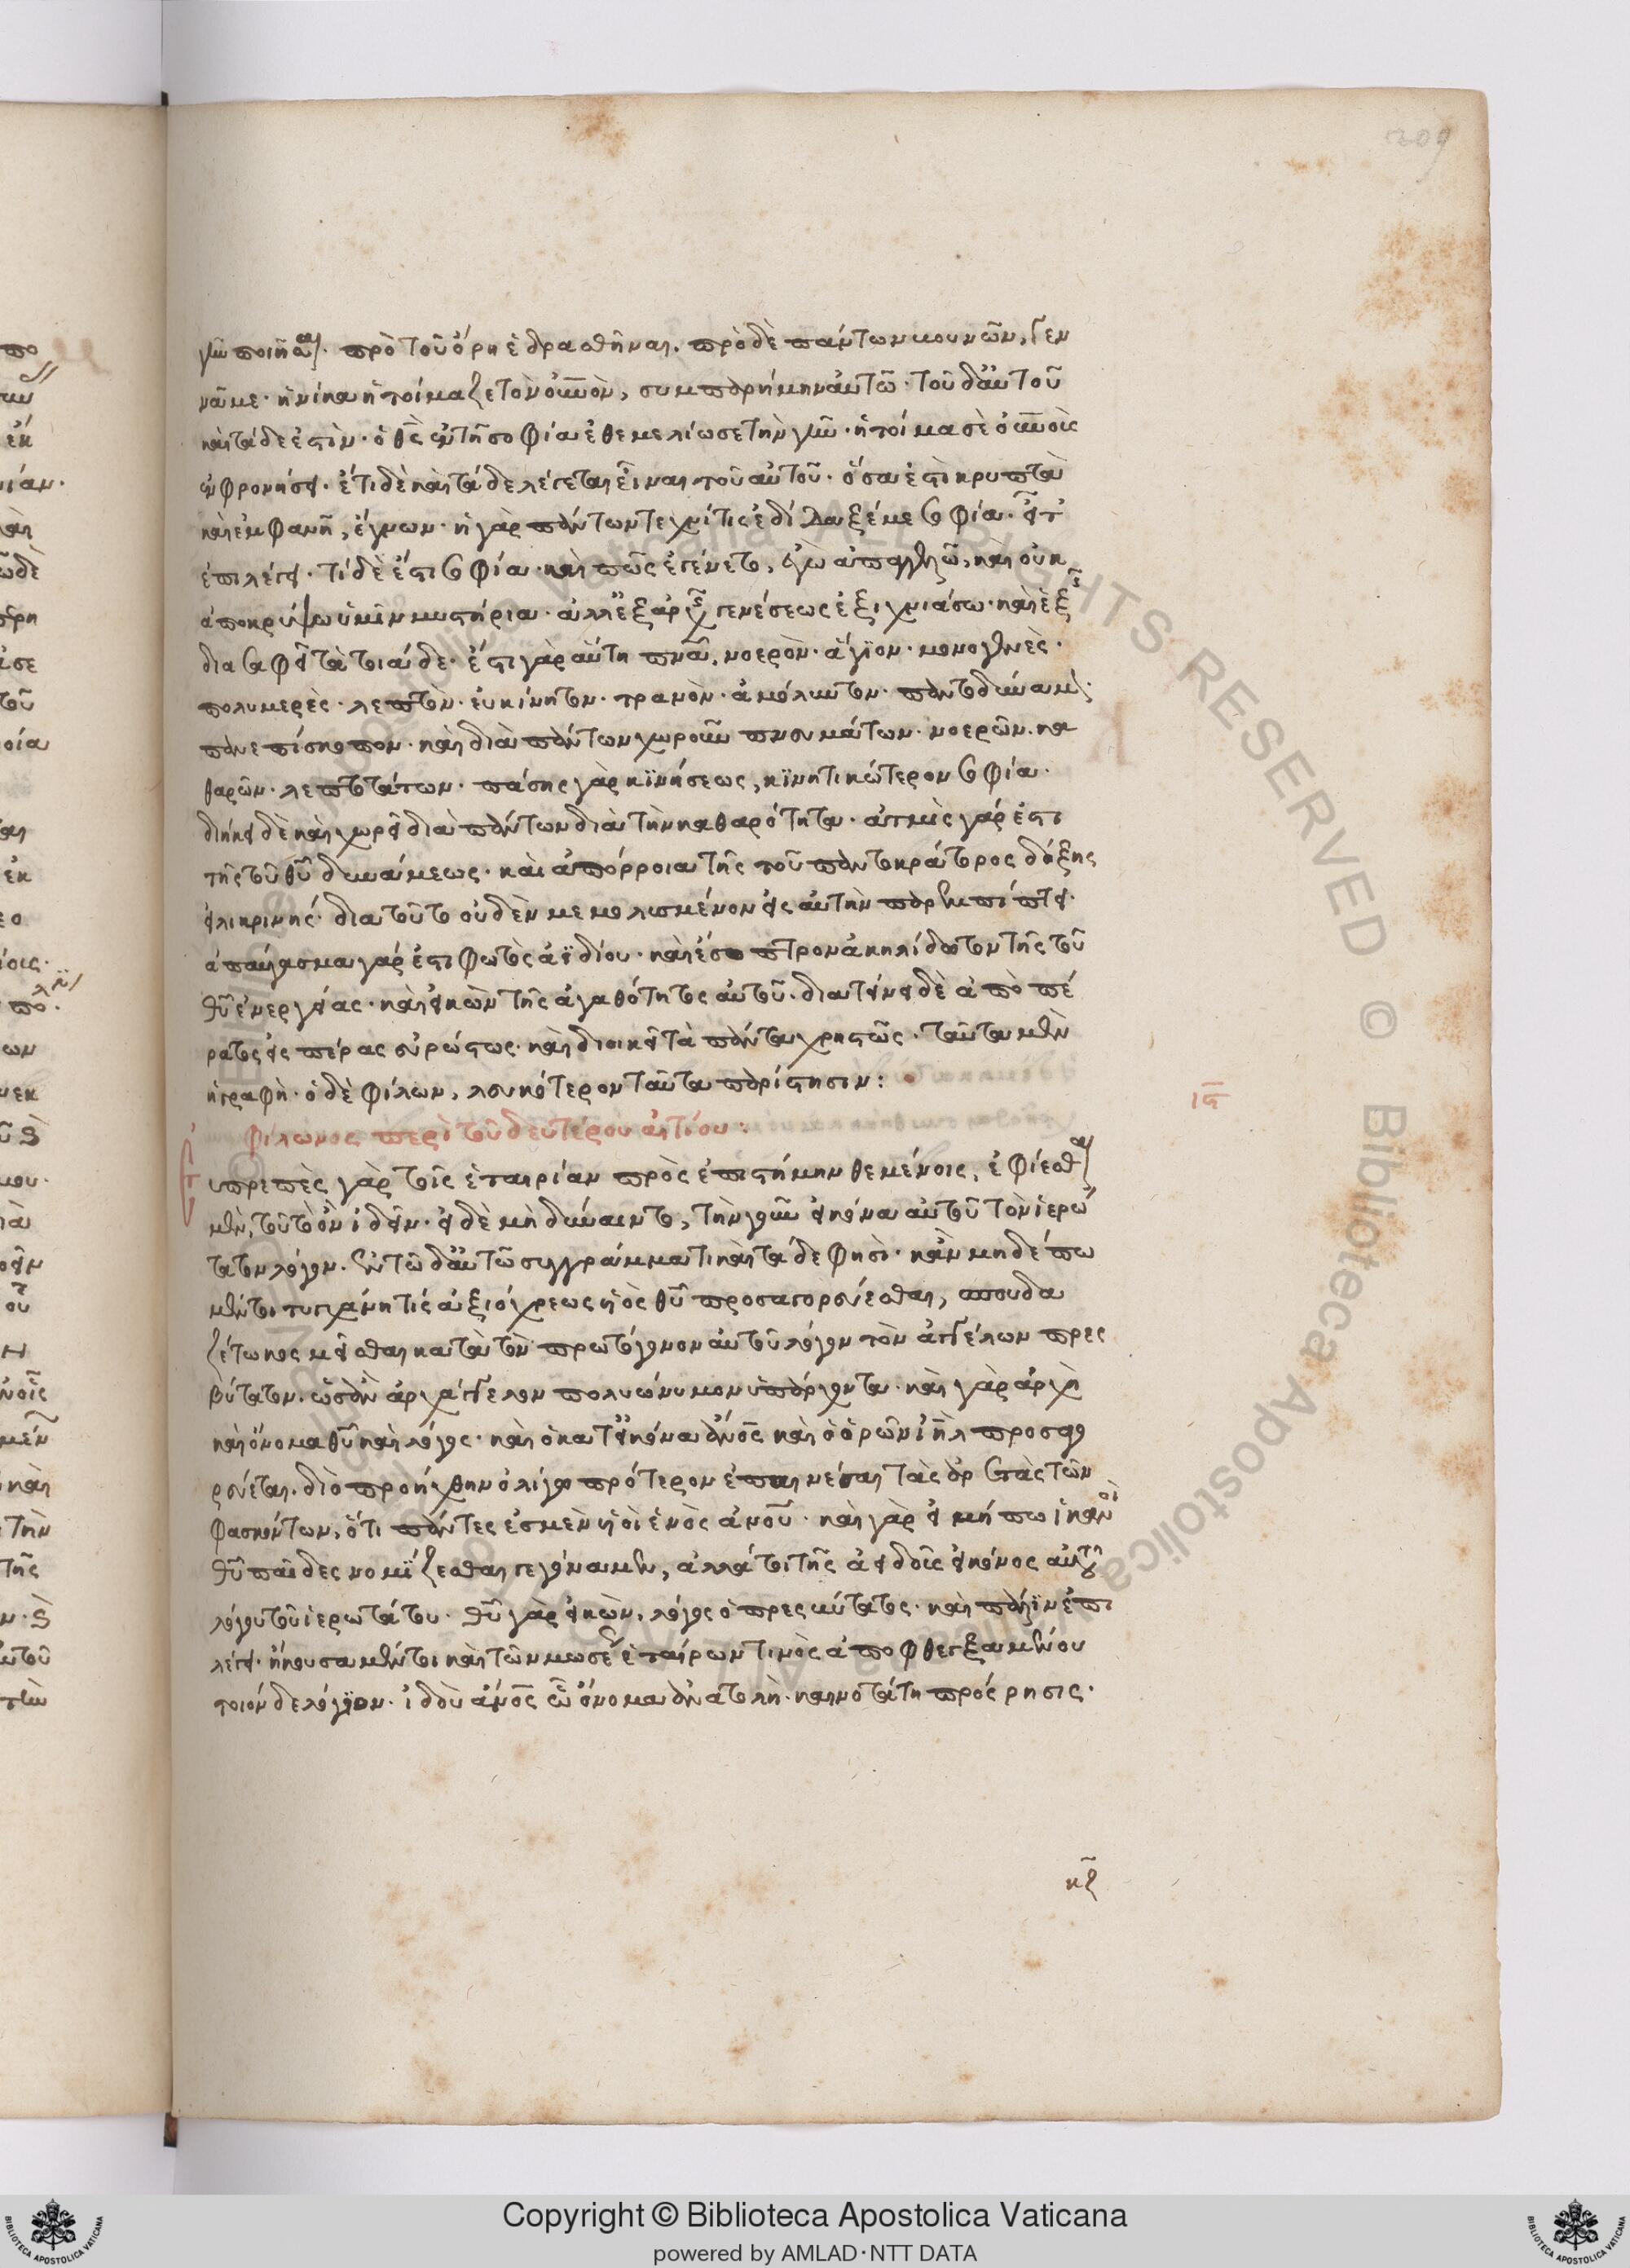 209
γῆν ποιῆσαι. πρὸ τοῦ ὄρη ἑδρασθῆναι. πρὸ δὲ πάντων βουνῶν, γεν
νᾶ με. ἡνίκα ἡτοίμαζε τὸν οὐνὸν, συμπαρήμην αὐτῶ. τοῦ δ' αὐτοῦ
καὶ τάδε ἐστὶν. ὁ θς̄ ἐν τῆ σοφία ἐθεμελίωσε τὴν γῆν. ἡτοίμασε οὐνοὺς
ἐν φρονήσει. ἔτι δὲ καὶ τάδε λέγεται εἶναι τοῦ αὐτοῦ. ὅσα ἐστὶ κρυπτὰ
καὶ ἐμφανῆ, ἔγνων. ἡ γὰρ πάντων τεχνίτις ἐδίδαξέ με σοφία. εἶτ'
ἐπιλέγει. τί δέ ἐστι σοφία καὶ πῶς ἐγένετο, ἐγὼ ἀπαγγελῶ, καὶ οὐκ
ἀποκρύψω ὑμῖν μυστήρια. ἀλλ' ἐξ ἀρχῆς γενέσεως ἐξιχνιάσω. καὶ ἑξῆς
διασαφεῖ τὰ τοιάδε. ἔστι γὰρ αὕτη πνᾶ. νοερὸν. ἅγιον. μονογενὲς.
πολυμερὲς. λεπτὸν. εὐκίνητον. τρανὸν. ἀμόλυντον. παντοδύναμον.
πανεπίσκοπον. καὶ διὰ πάντων χωροῦν πνευμάτων. νοερῶν. κα
θαρῶν. λεπτοτάτων. πάσης γὰρ κϊνήσεως, κϊνητικώτερον σοφία.
διήκει δὲ καὶ χωρεῖ διὰ πάντων διὰ τὴν καθαρότητα. ἀτμὶς γάρ ἐστι
τῆς τοῦ θῦ δυνάμεως. καὶ ἀπόρροια τῆς τοῦ παντοκράτορος δόξης
εἰλικρινής. διὰ τοῦτο οὐδὲν μεμολυσμένον εἰς αὐτὴν παρεμπίπτει.
ἀπαύγασμα γάρ ἐστι φωτὸς ἀϊδίου. καὶ ἔσοπτρον ἀκηλίδωτον τῆς τοῦ
θῦ ἐνεργείας. καὶ εἰκὼν τῆς ἀγαθότητος αὐτοῦ. διατείνει δὲ ἀπὸ πέ
ρατος εἰς πέρας εὐρώστως. καὶ διοικεῖ τὰ πάντα χρηστῶς. ταῦτα μὲν
ἡ γραφὴ. ὁ δὲ φίλων, λευκότερον ταῦτα παρίστησιν:
ις̄
Φίλωνος περὶ τοῦ δευτέρου αἰτίου:
Εὐπρεπὲς γὰρ τοῖς ἑταιρίαν πρὸς ἐπιστήμην θεμένοις, ἐφίεσθαι
μὲν, τοῦ τὸ ὂν ἰδεῖν. εἰ δὲ μὴ δύναιντο, τὴν γοῦν εἰκόνα αὐτοῦ τὸν ἱερώ
τατον λόγον. ἐν τῶ δ' αὐτῶ συγγράμματι καὶ τάδε φησὶ. κἂν μηδέπω
μέντοι τυγχάνη τίς ἀξιόχρεως υἱὸς θῦ προσαγορεύεσθαι, σπουδα
ζέτω κοσμεῖσθαι κατὰ τὸν πρωτόγονον αὐτοῦ λόγον τὸν ἀγγέλων πρεσ
βύτατον. ὡσὰν ἀρχάγγελον πολυώνυμον ὑπάρχοντα. καὶ γὰρ ἀρχὴ
καὶ ὄνομα θῦ καὶ λόγος. καὶ ὁ κατ' εἰκόνα ἄνος̄ καὶ ὁ ὁρῶν ἰηλ προσαγο
ρεύεται. διὸ προήχθην ὀλίγω πρότερον ἐπαινέσαι τὰς ἀρετὰς τῶν
φασκόντων, ὅτι πάντες ἐσμὲν υἱοὶ ἑνὸς ἀνοῦ. καὶ γὰρ εἰ μήπω ἱκανοὶ
θῦ παῖδες νομίζεσθαι γεγόναμεν, ἀλλά τοι τῆς ἀειδοῦς εἰκόνος αὐτοῦ
λόγου τοῦ ἱερωτάτου. θῦ γὰρ εἰκὼν, λόγος ὁ πρεσβύτατος. καὶ πάλιν ἐπι
λέγει. ἤκουσα μέντοι καὶ τῶν μωσέως ἑταίρων τινὸς ἀποφθεγξαμένου
τοιόνδε λόγιον. ἰδοὺ ἄνος̄ ὧ ὄνομα ἀνατολὴ. καινοτάτη πρόσρησις.
κζ̄